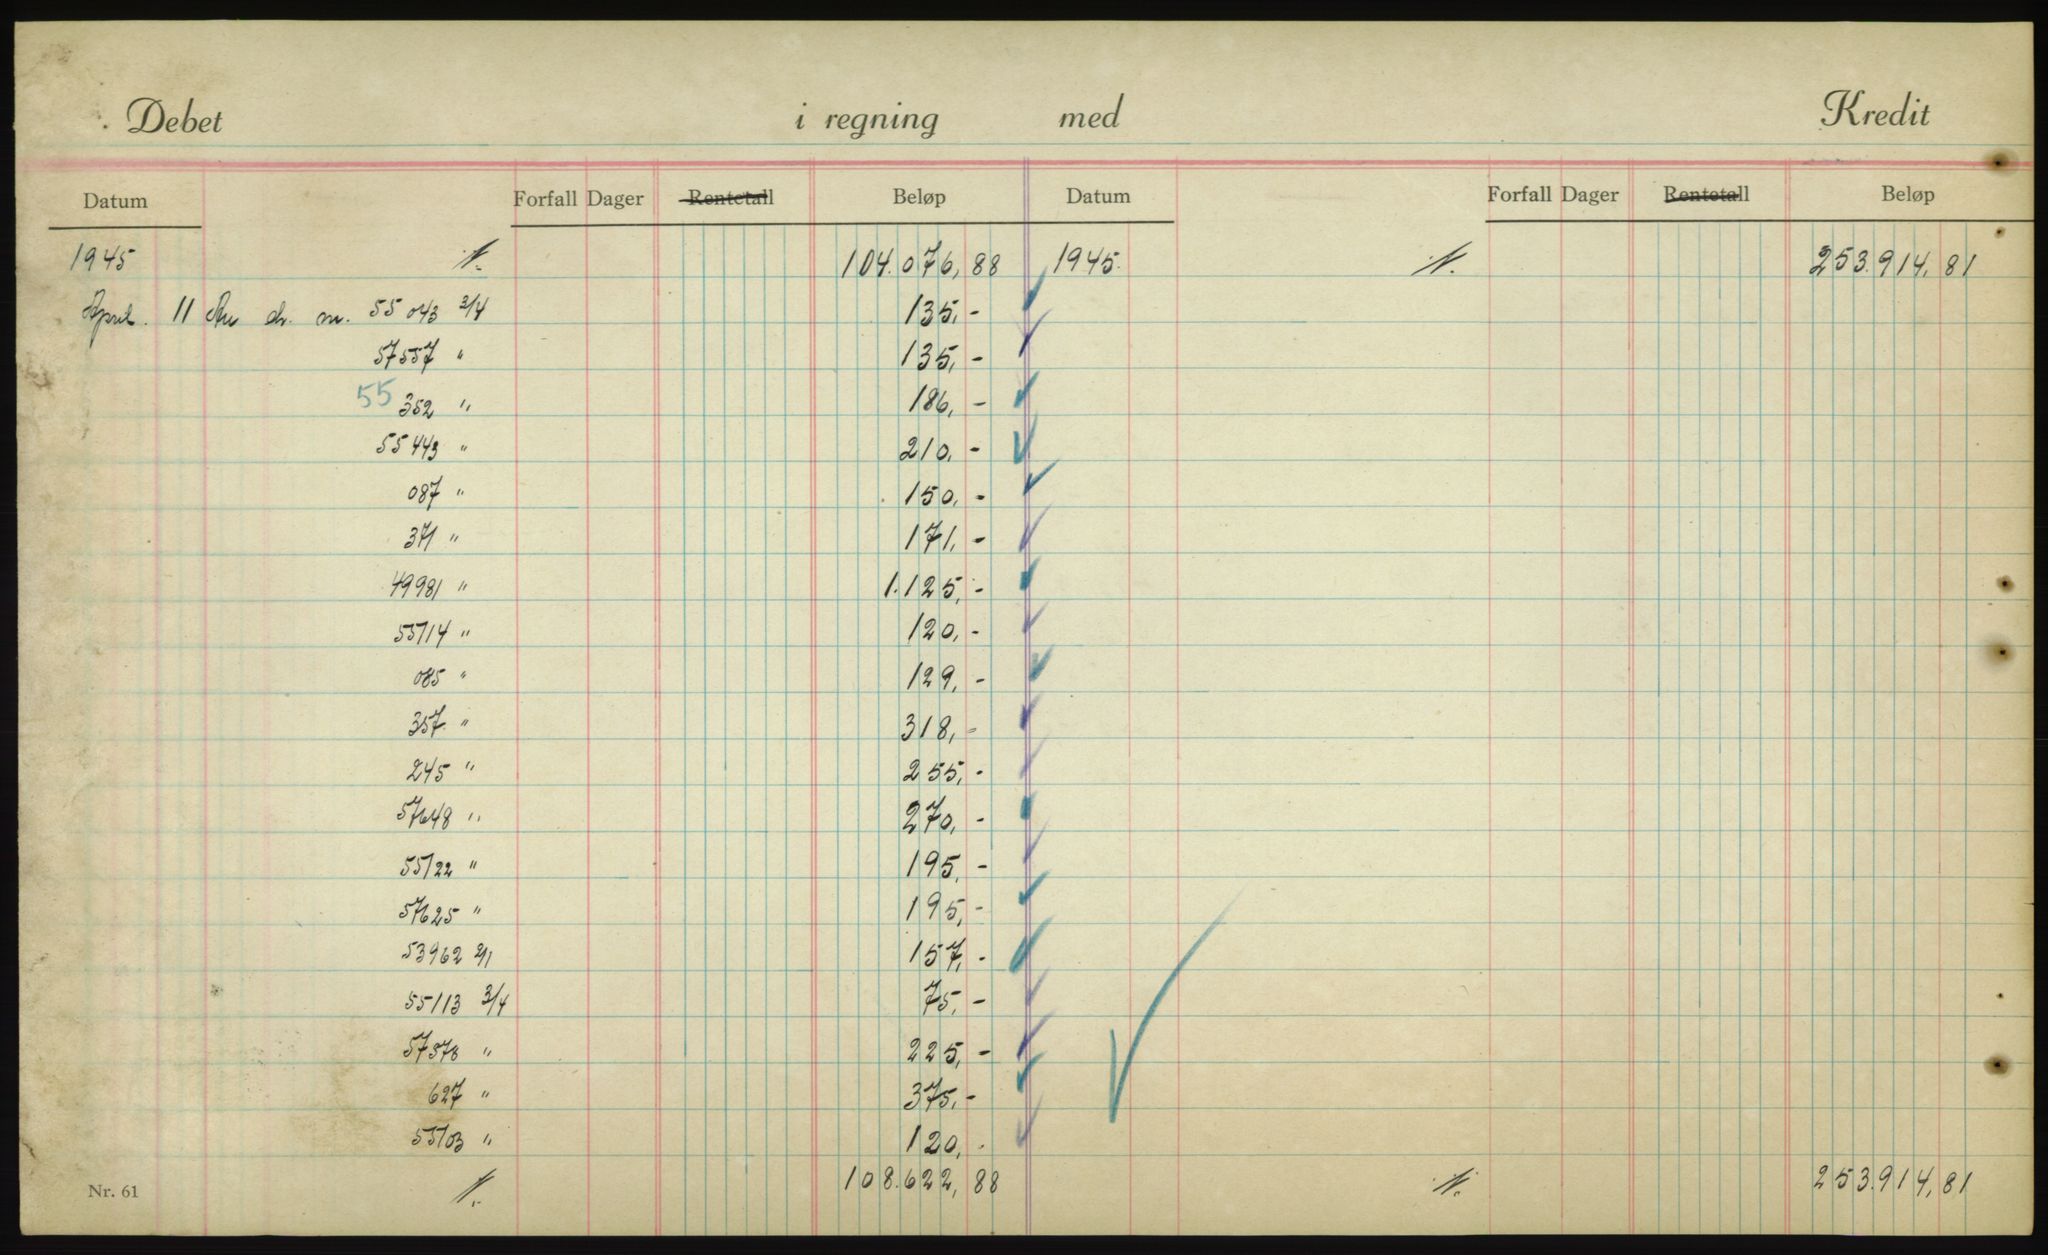 Debet i regning med Kredit
Datum Forfall Dager Rentetall Beløp Datum Forfall Dager Rentetall Beløp
1945 104.076,88 1945. 253.914,81
April. 11 55 043 3/4 135,-
57557 " 135,-
55 352 " 186,-
55 443 " 210,-
087 " 150,-
371 " 171,-
49981 " 1.125,-
55114 " 120,-
085 " 129,-
357 " 318,-
245 " 255,-
57648 " 270,-
55122 " 195,-
57625 " 195,-
53962 2/1 157,-
55113 3/4 75,-
57578 " 225,-
627 " 375,-
55103 " 120,-
108.622,88 253.914,81
Nr. 61